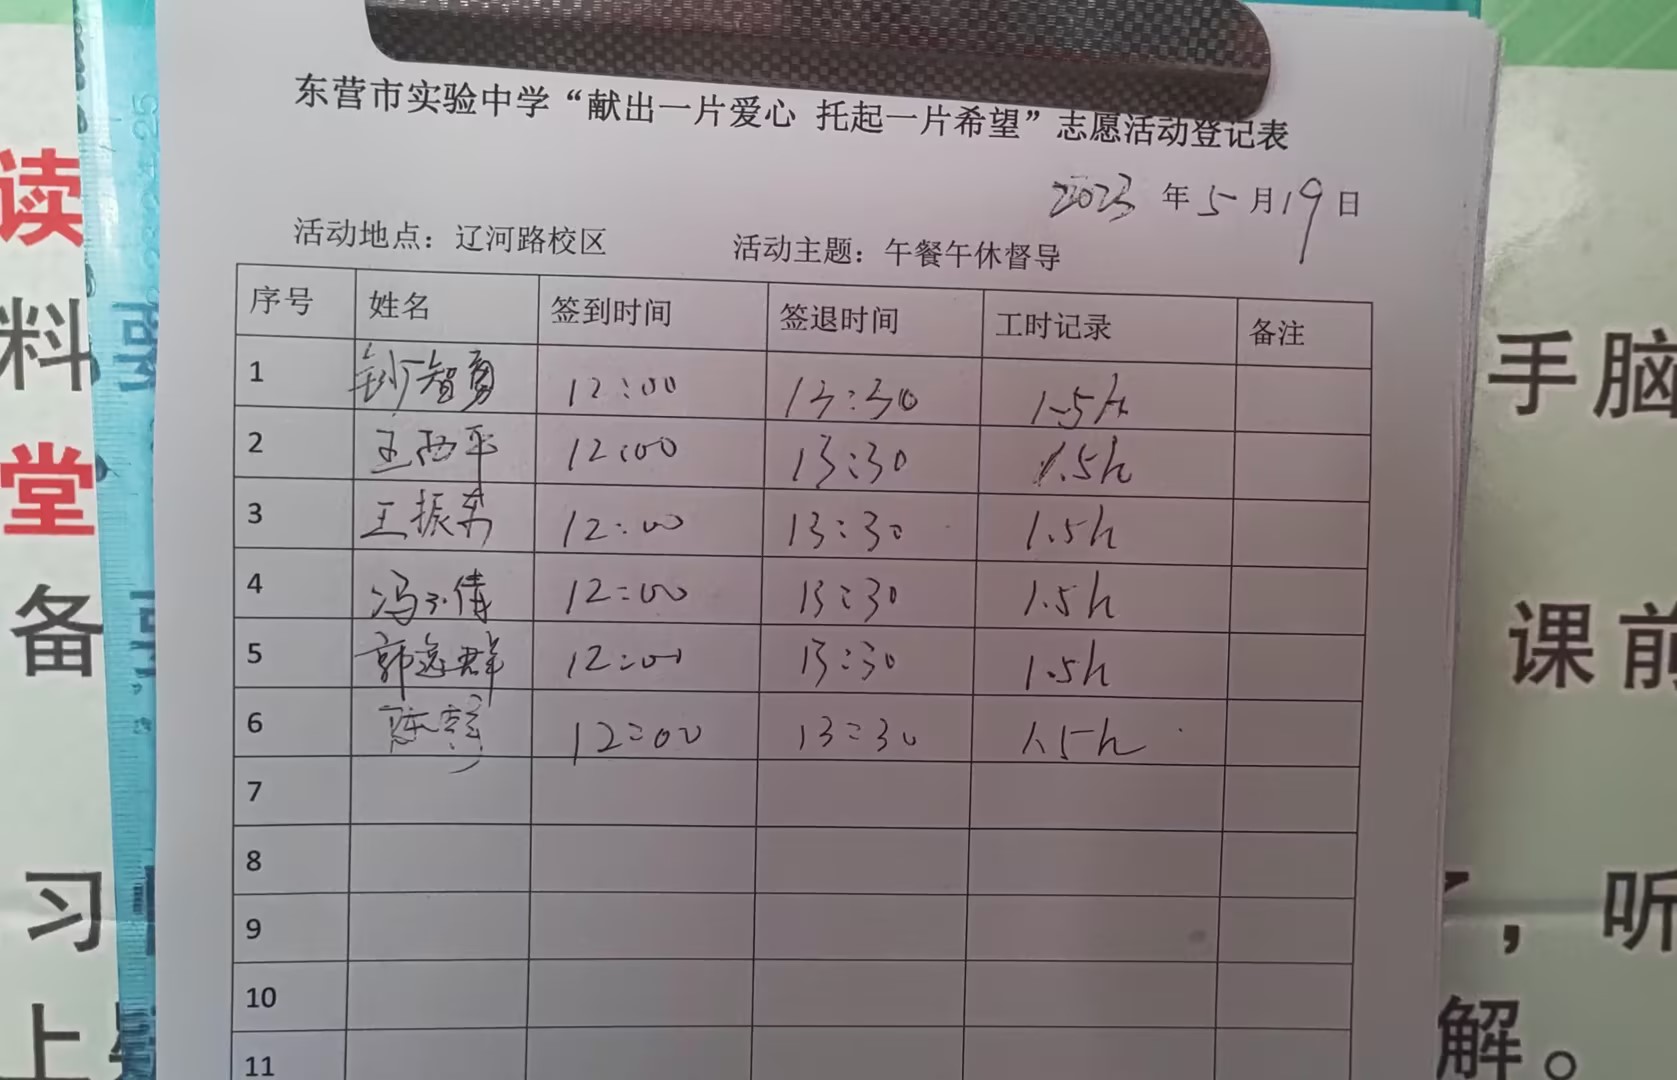 东营市实验中学“献出一片爱心 托起一片希望”志愿活动登记表
2023 年 5 月 19 日
活动地点：辽河路校区 活动主题：午餐午休督导
序号 姓名 签到时间 签退时间 工时记录 备注
1 智勇 12:00 13:30 1.5h
2 王西平 12:00 13:30 1.5h
3 王振东 12:00 13:30 1.5h
4 冯 倩 12:00 13:30 1.5h
5 郭逸群 12:00 13:30 1.5h
6 陈彦 12:00 13:30 1.5h
7
8
9
10
11
读
料
堂
备
习
上
手脑
课前
，听
解。